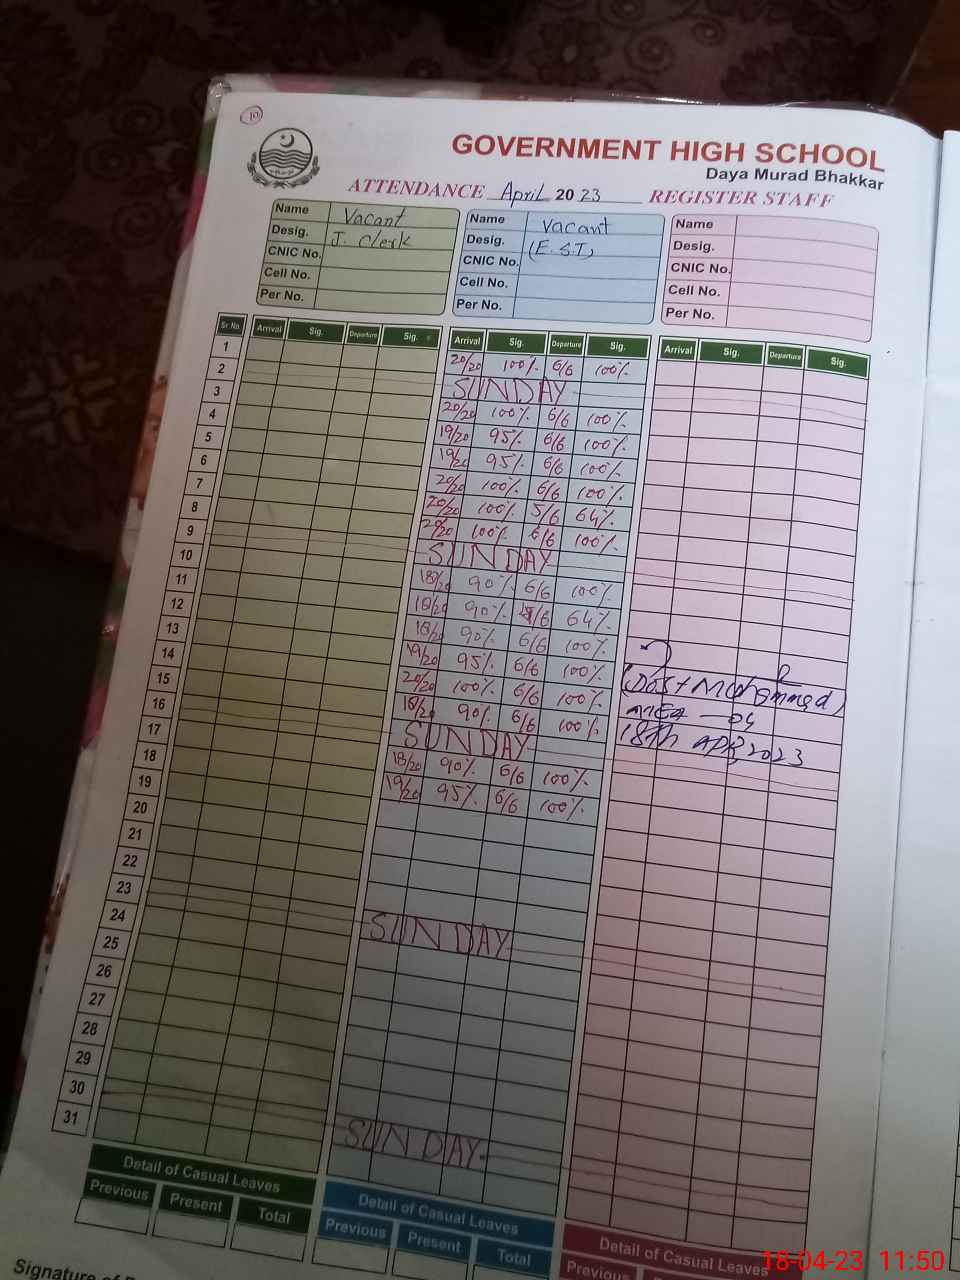 10
GOVERNMENT HIGH SCHOOL
Daya Murad Bhakkar
ATTENDANCE April 2023 REGISTER STAFF
Name Vacant
Desig. J. Clerk
CNIC No.
Cell No.
Per No.
Name Vacant
Desig. (E.S.T)
CNIC No.
Cell No.
Per No.
Name
Desig.
CNIC No.
Cell No.
Per No.
Sr. No. Arrival Sig. Departure Sig. Arrival Sig. Departure Sig. Arrival Sig. Departure Sig.
1 20/20 100% 6/6 100%
2 SUNDAY
3 20/20 100% 6/6 100%
4 19/20 95% 6/6 100%
5 19/20 95% 6/6 100%
6 20/20 100% 6/6 100%
7 20/20 100% 5/6 64%
8 20/20 100% 6/6 100%
9 SUNDAY
10 18/20 90% 6/6 100%
11 18/20 90% /6 64%
12 18/20 90% 6/6 100%
13 19/20 95% 6/6 100%
14 20/20 100% 6/6 100%
15 18/20 90% 6/6 100%
16 SUNDAY
17 18/20 90% 6/6 100%
18 19/20 95% 6/6 100%
19
20
21
22
23 SUNDAY
24
25
26
27
28
29
30 SUNDAY
31
(Dost Mohammad)
MEA - 04
18th APR, 2023
Detail of Casual Leaves
Previous Present Total
Detail of Casual Leaves
Previous Present Total
Detail of Casual Leaves
Previous
Signature of
18-04-23 11:50